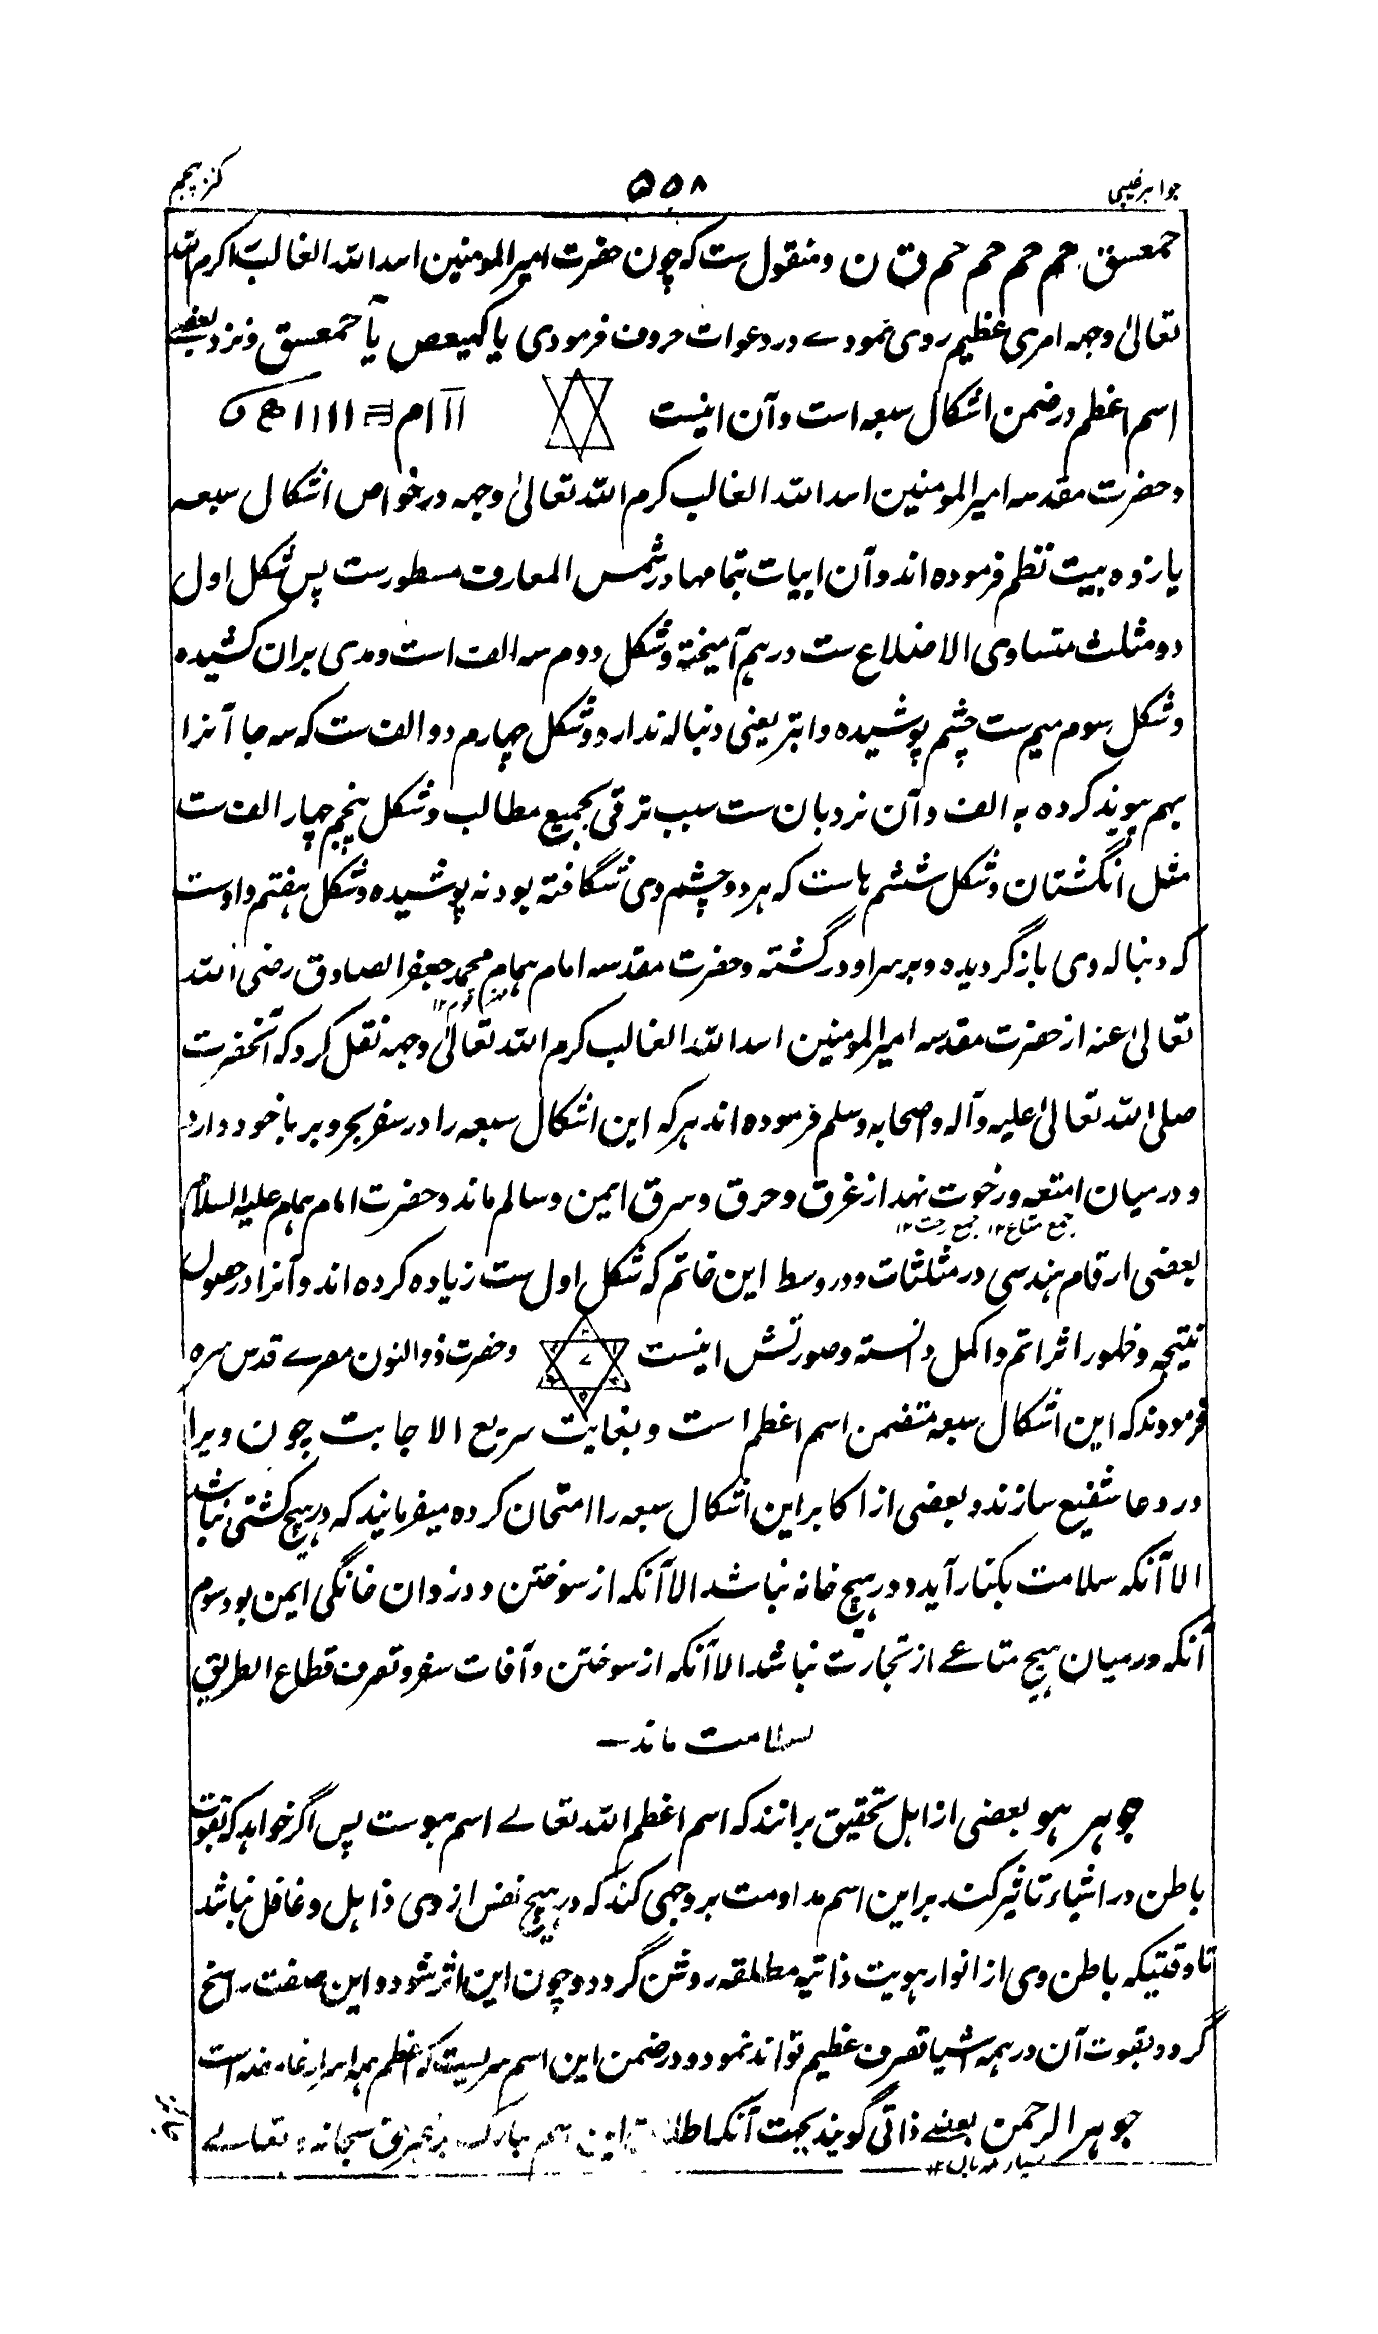 جواهر غیبی
۵۵۸
کنز پنجم
حمعسق حم حم حم حم ق ن و منقول ست که چون حضرت امیر المومنین اسد الله الغالب اکرم الله
تعالیٰ وجهه امری عظیم روی نمودے در دعوات حروف فرمودی یا کهیعص یا حمعسق و نزد بعضے
اسم اعظم در ضمن اشکال سبعه است و آن اینست
و حضرت مقدسه امیر المومنین اسد الله الغالب کرم الله تعالیٰ وجهه در خواص اشکال سبعه
یازده بیت نظم فرموده اند و آن ابیات بتمامها در شمس المعارف مسطورست پس شکل اول
دو مثلث متساوی الاضلاع ست درهم آمیخته و شکل دوم سه الف است و مدی بران کشیده
و شکل سوم میم ست چشم پوشیده و ابتر یعنی دنباله ندارد و شکل چهارم دو الف ست که سه جا آنرا
بهم پیوند کرده به الف و آن نردبان ست سبب ترقی بجمیع مطالب و شکل پنجم چهار الف ست
مثل انگشتان و شکل ششم هاست که هر دو چشم وی شگافته بود نه پوشیده و شکل هفتم واوست
که دنباله وی باز گردیده و بر سر او در گشته و حضرت مقدسه امام همام محمد جعفر الصادق رضی الله
تعالیٰ عنه از حضرت مقدسه امیر المومنین اسد الله الغالب کرم الله تعالیٰ وجهه نقل کرد که آنحضرت
صلی الله تعالیٰ علیه و آله و اصحابه وسلم فرموده اند هر که این اشکال سبعه را در سفر بحر و بر با خود دارد
و در میان امتعه و رخوت نهد از غرق و حرق و سرق ایمن و سالم ماند و حضرت امام همام علیه السلام
جمع متاع ۱۲ جمع رخت ۱۲
بعضی ارقام هندسی در مثلثات و در وسط این خاتم که شکل اول ست زیاده کرده اند و آنرا در حصول
نتیجه و ظهور اثر اتم و اکمل دانسته و صورتش اینست و حضرت ذوالنون مصرے قدس سره
فرمودند که این اشکال سبعه متضمن اسم اعظم است و بغایت سریع الاجابت چون ویرا
در دعا شفیع سازند و بعضی از اکابر این اشکال سبعه را امتحان کرده میفرمایند که در هیچ کشتی نباشد
الا آنکه سلامت بکنار آید و در هیچ خانه نباشد الا آنکه از سوختن و دزدان خانگی ایمن بود سوم
آنکه در میان هیچ متاعے از تجارت نباشد الا آنکه از سوختن و آفات سفر و تصرف قطاع الطریق
سلامت ماند
جوهر هو بعضی از اهل تحقیق برانند که اسم اعظم الله تعالے اسم هوست پس اگر خواهد که بقوت
باطن در اشیاء تاثیر کند بر این اسم مداومت بر وجهی کند که در هیچ نفس از وی ذاهل و غافل نباشد
تا وقتیکه باطن وی از انوار هویت ذاتیه مطلقه روشن گردد و چون این اثر شود و این صفت راسخ
گردد بقوت آن در همه اشیا تصرف عظیم تواند نمود و در ضمن این اسم سریست که اعظم همه اسرار است
جوهر الرحمن بعضے ذاتی گویند بجهت آنکه اطلاق این اسم مبارک بر غیر حق سبحانه و تعالے